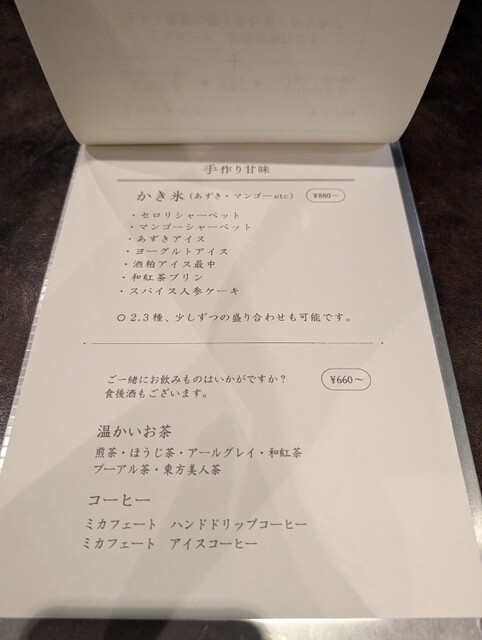 手作り甘味
かき氷(あずき・マンゴーetc) ¥880～
・セロリシャーベット
・マンゴーシャーベット
・あずきアイス
・ヨーグルトアイス
・酒粕アイス最中
・和紅茶プリン
・スパイス人参ケーキ
○2.3種、少しずつの盛り合わせも可能です。
ご一緒にお飲みものはいかがですか? ¥660～
食後酒もございます。
温かいお茶
煎茶・ほうじ茶・アールグレイ・和紅茶
プーアル茶・東方美人茶
コーヒー
ミカフェート　ハンドドリップコーヒー
ミカフェート　アイスコーヒー